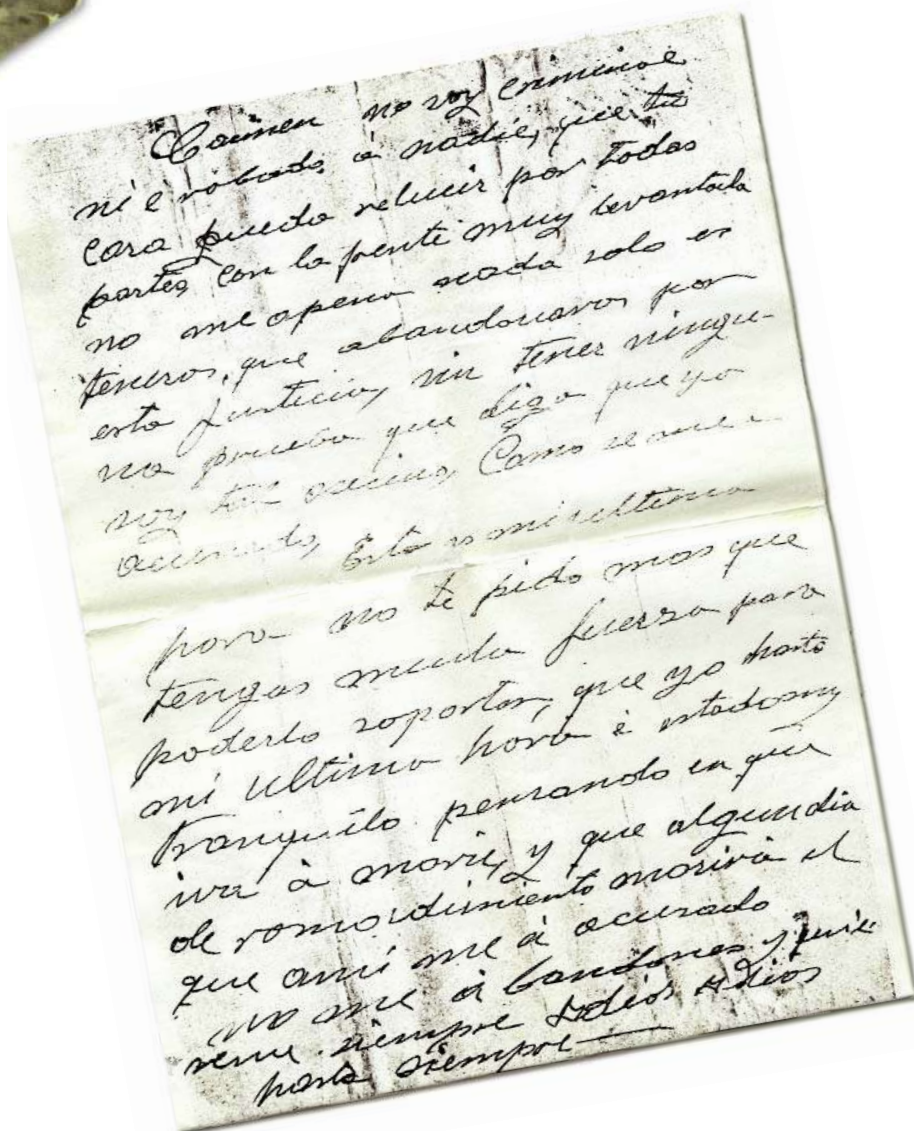 Carmen no soy criminal
ni e robado á nadie, que tu
cara pueda relucir por todas
partes con la frente muy levantada
no me apena nada solo es
teneros que abandonaros por
esta justicia, sin tener ningu-
na prueba que diga que yo
soy tal asecino, Como se me a
acusado, Esta es mi ultima
para no te pido mas que
tengas mucha fuerza para
poderlo soportar, que yo hasta
mi ultima hora é estado muy
tranquilo pensando en que
iva á morir, y que algun dia
de romordimiento morirá el
que ami me á acusado
no me á bandones y quie
reme siempre Adios Adios
para siempre —